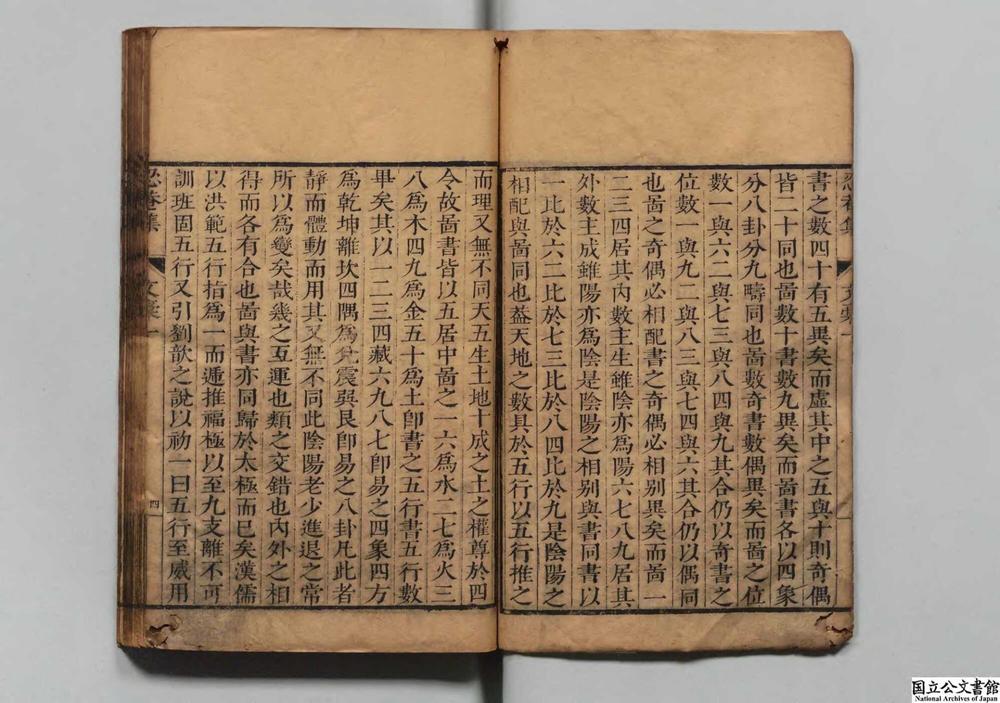 書之數四十有五異矣而虛其中之五與十則奇偶
皆二十同也啚數十書數九異矣而啚書各以四象
分八卦分九疇同也啚數奇書數偶異矣而啚之位
數一與六二與七三與八四與九其合仍以奇書之
位數一與九二與八三與七四與六其合仍以偶同
也啚之奇偶必相配書之奇偶必相別異矣而啚一
二三四居其內數主生雖陰亦爲陽六七八九居其
外數主成雖陽亦爲陰是陰陽之相別與書同書以
一比於六二比於七三比於八四比於九是陰陽之
相配與啚同也葢天地之數具於五行以五行推之
而理又無不同天五生土地十成之土之權尊於四
令故啚書皆以五居中啚之一六爲水二七爲火三
八爲木四九爲金五十爲土卽書之五行書五行數
畢矣其以一二三四藏六九八七卽易之四象四方
爲乾坤離坎四隅爲兌震巽艮卽易之八卦凡此者
靜而體動而用其又無不同此陰陽老少進退之常
所以爲變矣哉幾之互運也類之交錯也內外之相
得而各有合也啚與書亦同歸於太極而已矣漢儒
以洪範五行指爲一而遞推福極以至九支離不可
訓班固五行又引劉歆之說以初一曰五行至威用
忍菴集
文葉一
四
国立公文書館
National Archives of Japan